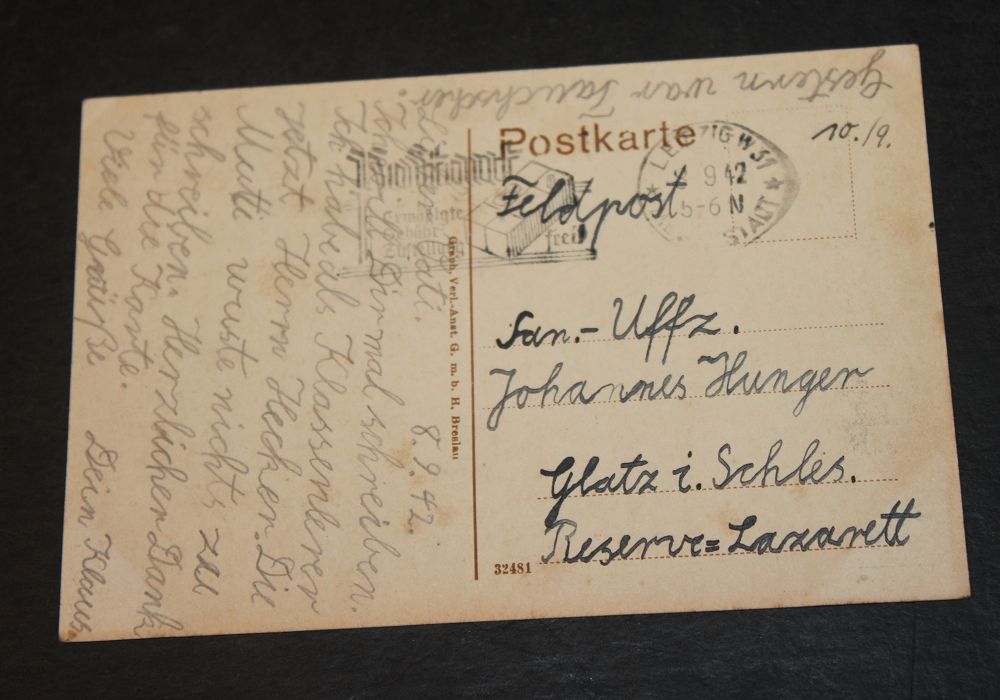 Postkarte
10./9.
LEIPZIG W31
9 42
5-6 N
Feldpost
Ermäßigte
frei
San.- Uffz.
Johannes Hunger
Glatz i. Schles.
Reserve=Lazarett
32481
Graph. Verl.-Anst. G. m. b. H. Breslau
8.9.42.
Lieber Vati.
Dir mal schreiben.
Ich habe als Klassenlerer
Jetzt Herrn Hecker. Die
Mutti wuste nicht zu
schreiben. Herzlichen Dank
für die Karte.
Viele Grüße Dein Klaus.
Gestern war Tauchscher.